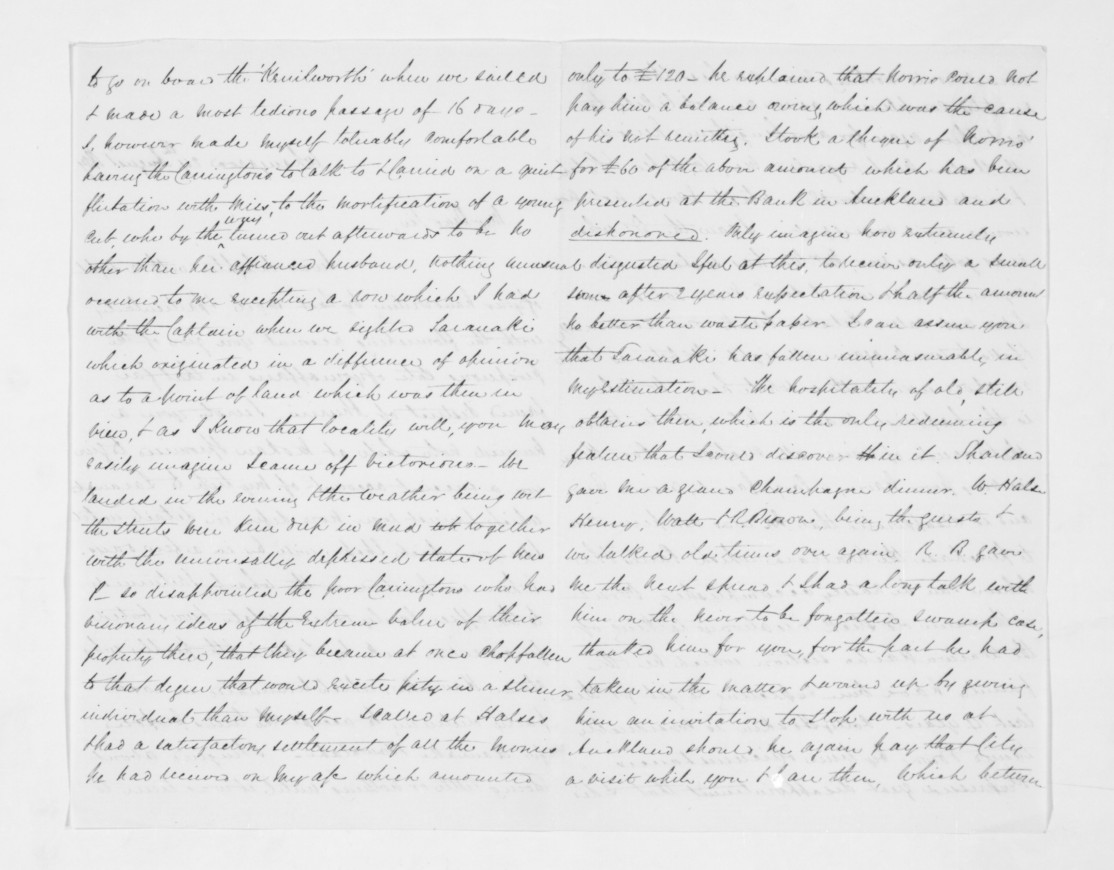 to go on board the 'Kenilworth' when we sailed
& made a most tedious passage of 16 days -
I, however made myself tolerably comfortable
having the Carringtons to talk to & carried on a quiet
flirtation with Miss, to the mortification of a young
cub who by the way turned out afterwards to be no
other than her affianced husband, nothing unusual
occurred to me excepting a row which I had
with the Captain when we sighted Taranaki
which originated in a difference of opinion
as to a point of land which was then in
view, & as I know that locality well, you may
easily imagine I came off victorious - We
landed in the evening & the weather being wet
the streets were knee deep in mud together
with the universally depressed state of New
P - so disappointed the poor Carringtons who had
visionary ideas of the extreme value of their
property there, that they became at once chopfallen
to that degree that would excite pity in a sterner
individual than myself - I called at Halses
& had a satisfactory settlement of all the monies
he had received on my a/c which amounted
only to £120 - he explained that Norris could not
pay him a balance owing, which was the cause
of his not remitting. I took a cheque of Norris'
for £60 of the above amount which has been
presented at the Bank in Auckland and
dishonored. Only imagine how extremely
disgusted I feel at this, to receive only a small
sum after 2 years expectation & half the amount
no better than waste paper. I can assure you
that Taranaki has fallen immeasurably in
my estimation - The hospitality of old, still
obtains there, which is the only redeeming
feature that I could discover in it. Shailand
gave me a grand Champagne dinner. W Halse
Henry, Watt & R. Browne, being the guests &
we talked old times over again R. B. gave
me the next spread & I had a long talk with
him on the never to be forgotten swamp case,
thanked him for you, for the part he had
taken in the matter & wound up by giving
him an invitation to stop with us at
Auckland should he again pay that City
a visit while you & I are there, Which between